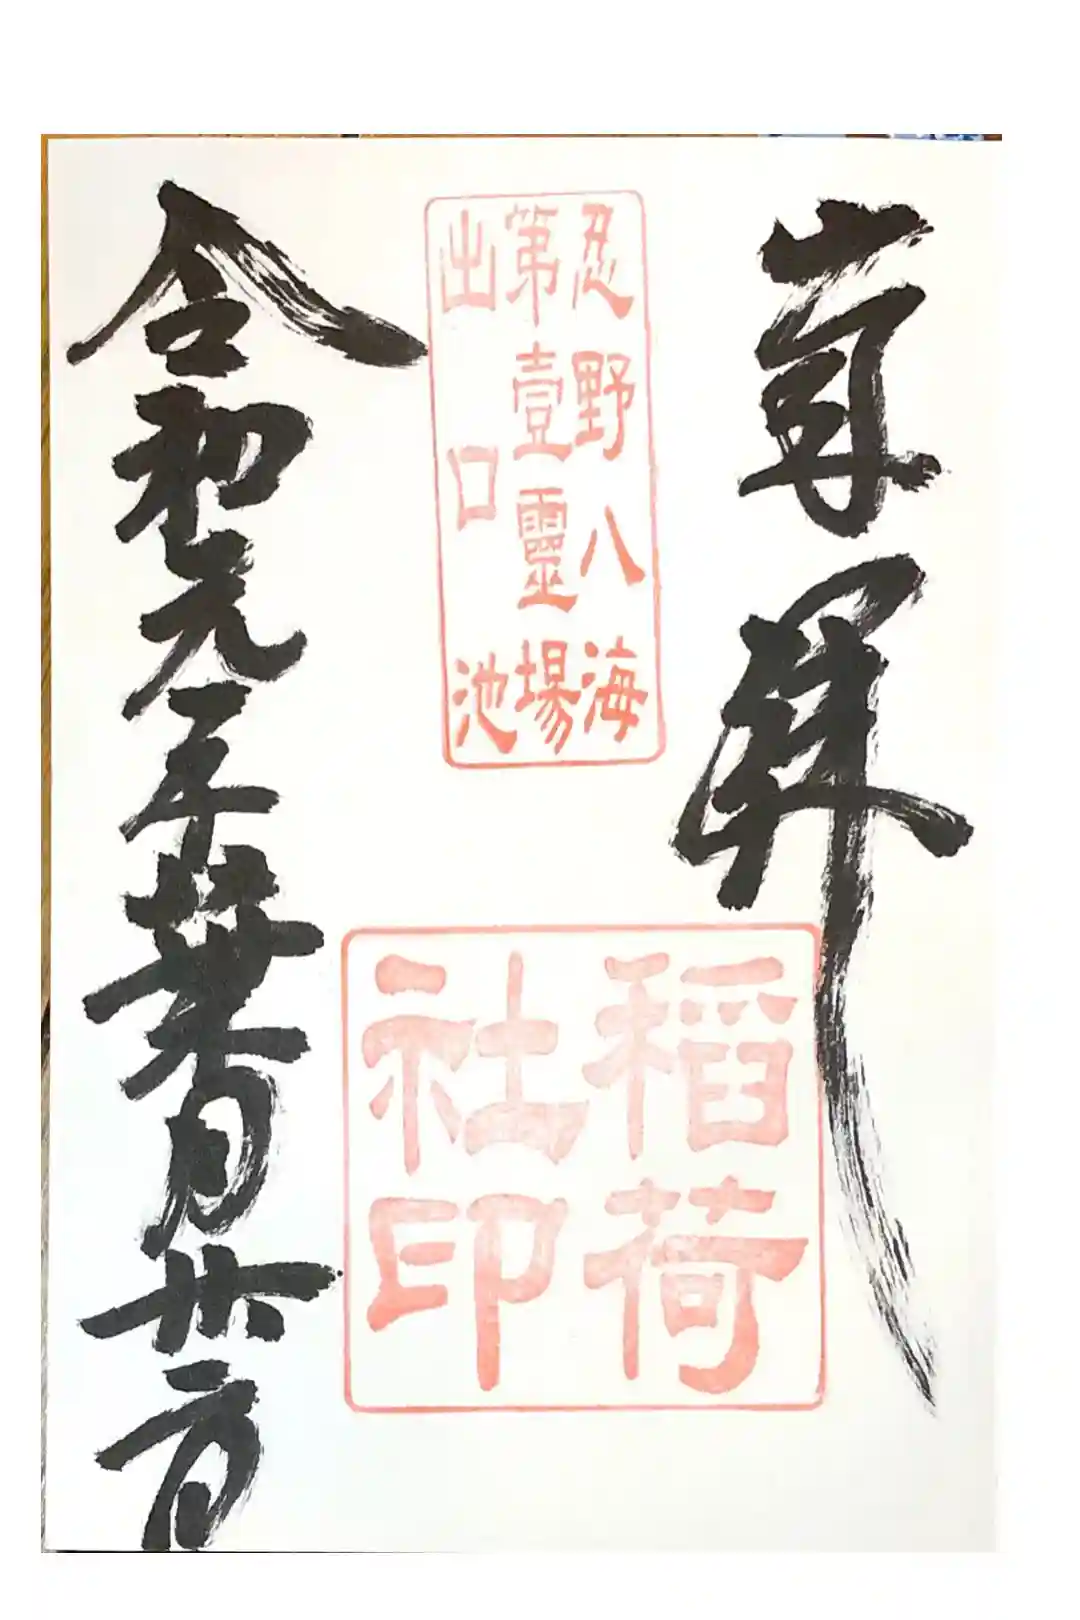 拝
忍野八海
第壹靈場
出口池
稲荷
社印
令和元年葉月廿一日